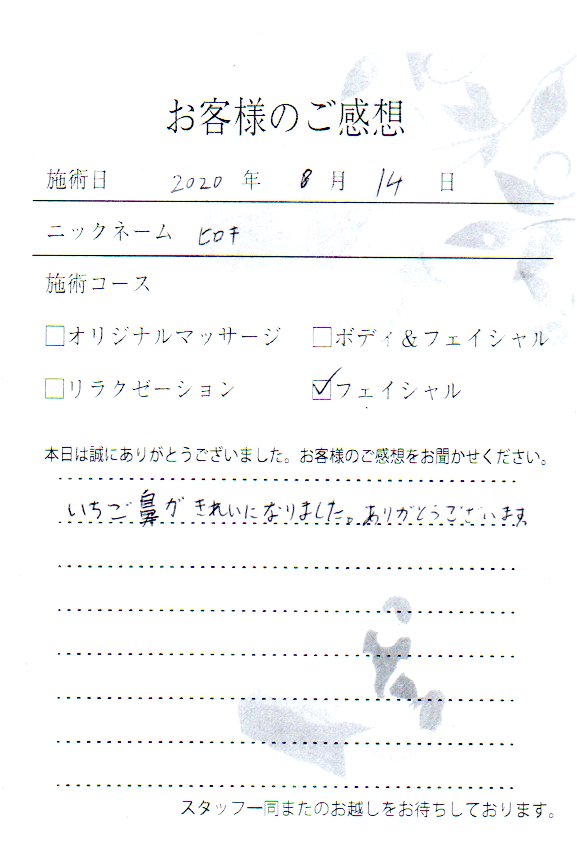 お客様のご感想
施術日 2020 年 8 月 14 日
ニックネーム ヒロキ
施術コース
□オリジナルマッサージ □ボディ&フェイシャル
□リラクゼーション ☑フェイシャル
本日は誠にありがとうございました。お客様のご感想をお聞かせください。
いちご鼻がきれいになりました。ありがとうございます
スタッフ一同またのお越しをお待ちしております。